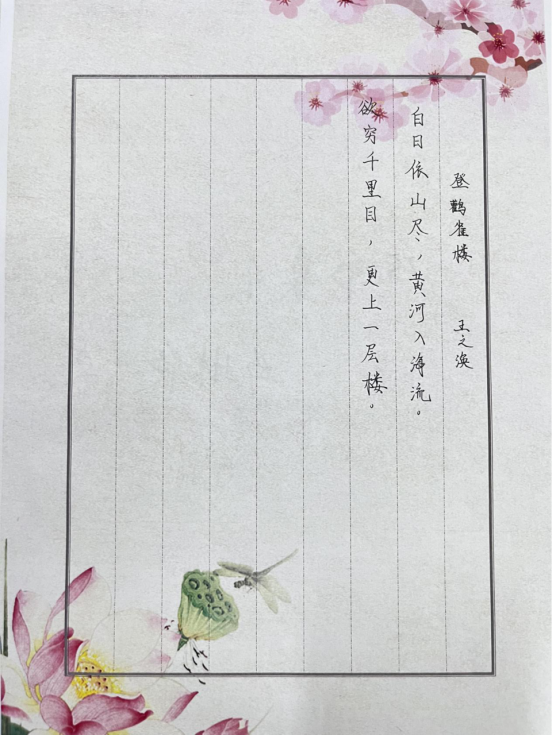 登鹳雀楼 王之涣
白日依山尽，黄河入海流。
欲穷千里目，更上一层楼。